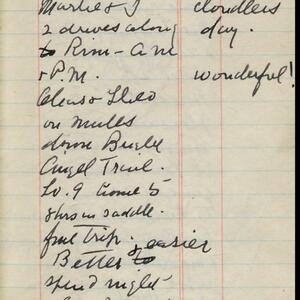 Marlie & I cloudless
2 drives along day.
to Rim - A.M.
& P.M. wonderful!
Cleo & Theo
on mules
down Bright
Angel Trail.
Lv. 9 Come 5
8 hrs in saddle.
fine trip.
Better & easier
to
spend night